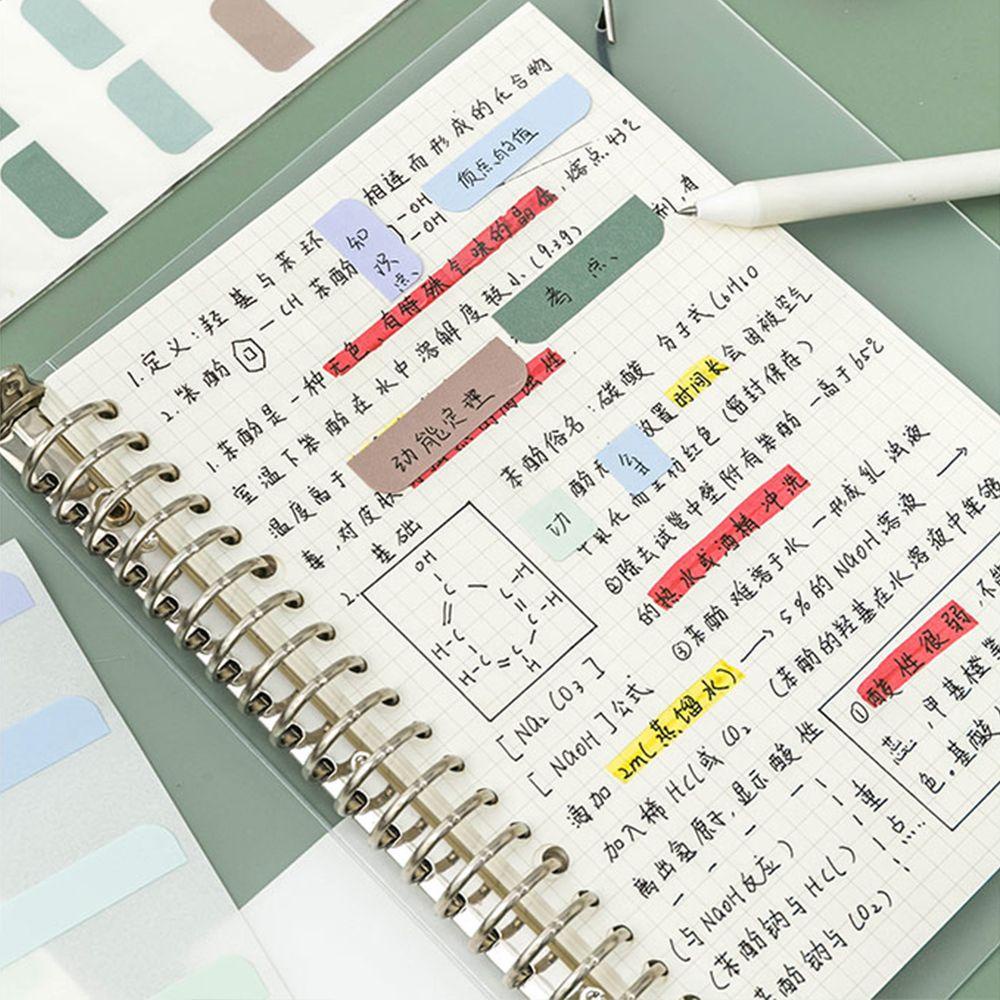 1.定义：羟基与苯环 相连而形成的化合物
2.苯酚 — CH 苯酚 )-OH
-OH
侦点的值
知识点
1.苯酚是一种无色、有特殊气味的晶体，熔点43℃
室温下苯酚在水中溶解度较小(9.3g)
考点
温度高于
利，有
动能定理
毒，对皮肤 腐蚀性
基础
2.
OH
苯酚俗名：碳酸 分子式C6H6O
酚 放置时间长会因被空气
中氧化而呈粉红色(密封保存)
切
②除去试管中壁附有苯酚 —高于65℃
的热水或酒精冲洗
③苯酚难溶于水 —形成乳浊液
→ 5%的NaOH溶液 →
(苯酚的羟基在水溶液中能够
[Na2CO3]
[NaOH]公式
滴加2ml蒸馏水)
加入稀HCl或CO2
离出氢原子，显示酸性
(与NaOH反应)
(苯酚钠与HCl)
苯酚钠与CO2)
重点……
①酸性很弱，不能
蕊，甲基橙等
色，基酸